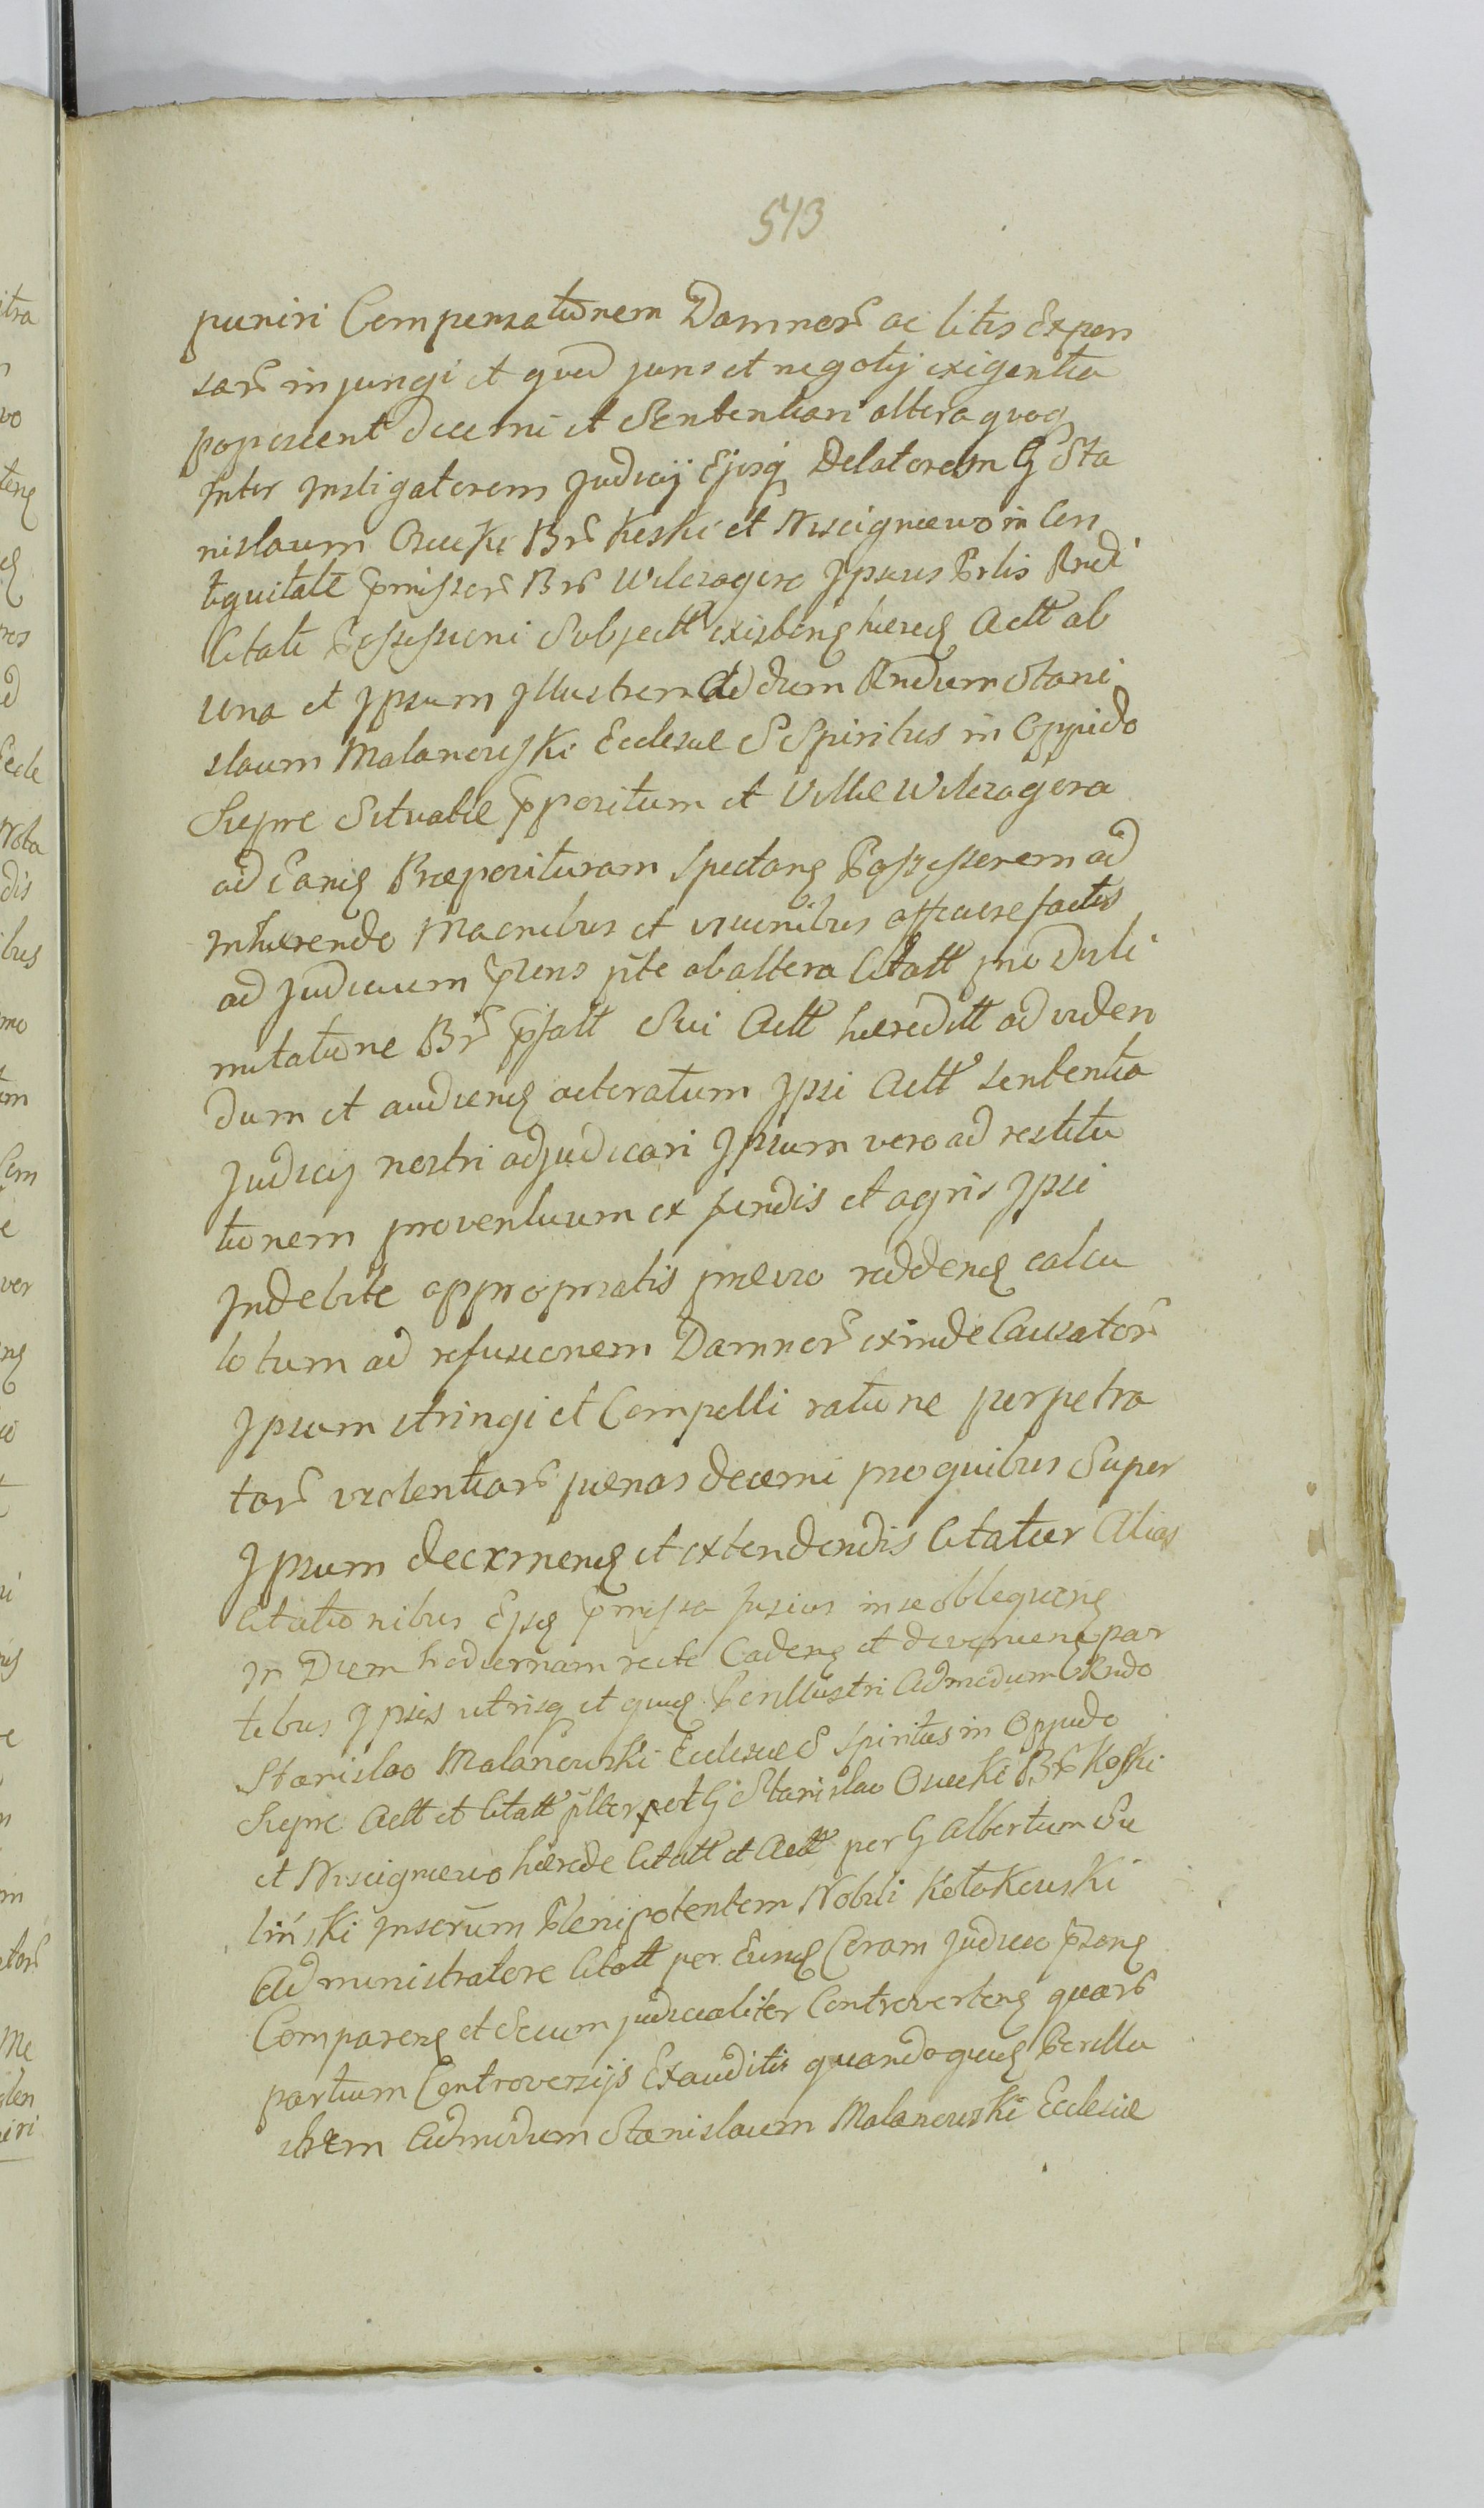 513
puniri Compensationem Damnor ac litis Expen
sar injungi et quod juris et negotij exigentia
poposcent decerni et Sententiari altera quoq
Inter Instigatorem Judicij Ejusq Delatorem G Sta
nislaum Osiecki Br Keski et Nisiegniewo in Con
tiguitate pmissor Br Wilczagora Ipsius Prlis Rndi
Citati Possessioni Subjectt existenq hæreq Actt ab
una et Ipsum Illustrem Addum Rndum Stani
slaum Malanowski Ecclesiæ S Spiritus in Oppido
Siepre Situatæ Ppositum et Villæ Wilczagora
ad Eanq Præposituram Spectanq Possessorem ad
Inhærendo Maonibus et vicinibus affuturæ factis
ad Judicium Prens pte ab altera Citatt pro Deli
mitatione Br pfatt Sui Actt hæreditt ad viden
dum et audienq acteratum Ipsi Actt sententia
Judicij nostri adjudicari Ipsum vero ad restitu
tionem proventuum ex fundis et agris Ipsi
Indebite appropriatis prævio reddenq calcu
lo tum ad refusionem Damnor exinde Causator
Ipsum stringi et Compelli ratione perpetra
tar violentiar pænas decerni pro quibus Super
Ipsum decernenq et extendendis Citatur Alias
Citationibus Ejsq pmissa fusius in se obloquenq
In Diem hodiernam recte Cadenq et devenienq par
tibus Ipsis utrisq et quiq Perillustri Admodum Rndo
Stanislao Malanowski Ecclesiæ S Spiritus in Oppido
Siepre Actt et Citatt pller per G Stanislao Osiecki Br Koski
et Nisiegniewo hærede Citatt et Actt per G Albertum Su
liński Inserum Plenipotentem Nobili Kotakowski
Administratore Citatt per Eunq Coram Judicio pzenq
Comparenq et Secum judicialiter Controvertenq quarb
partium Controversijs Exauditis quandoquiq Perillu
strem Admodum Stanislaum Malanowski Ecclesiæ